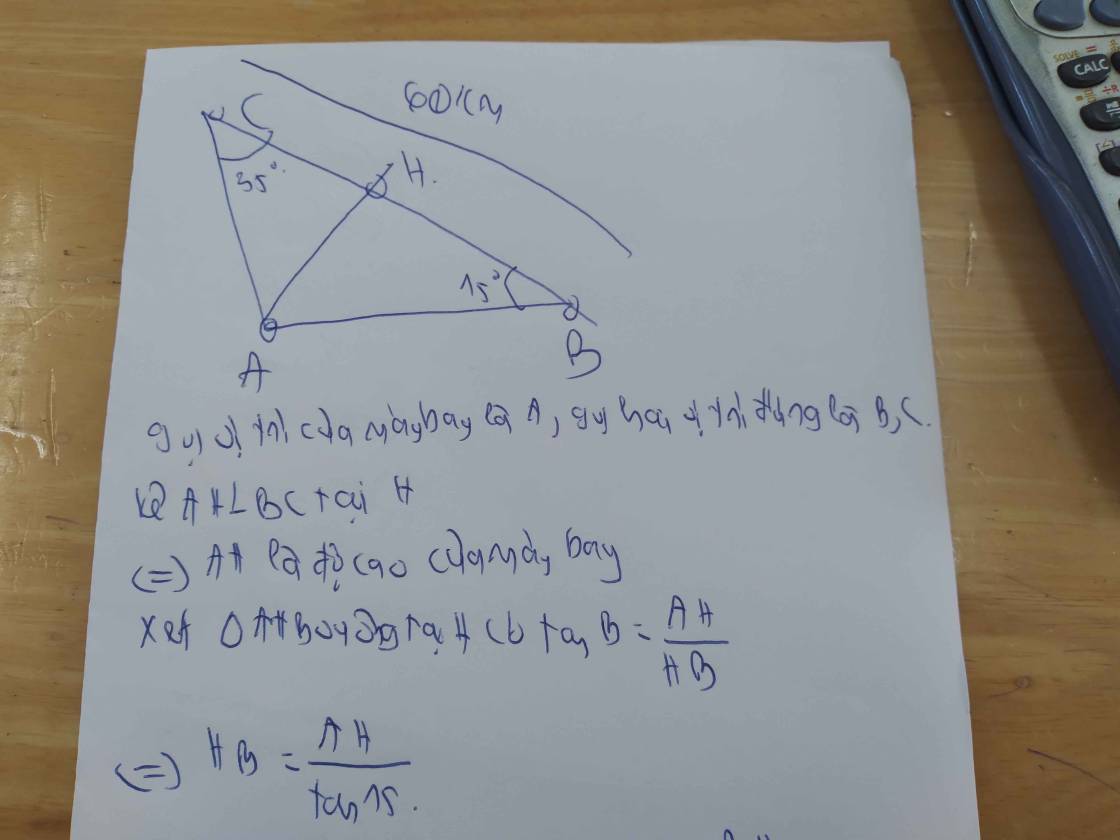 60km
C
35°
H.
15°
A
B
gọi vị trí của máy bay là A, gọi hai vị trí đứng là B, C.
Kẻ AH⊥BC tại H
(=) AH là độ cao của máy bay
Xét Δ AHB vuông tại H có tan B = AH / HB
(=) HB = AH / tan 15.
SOLVE =
CALC